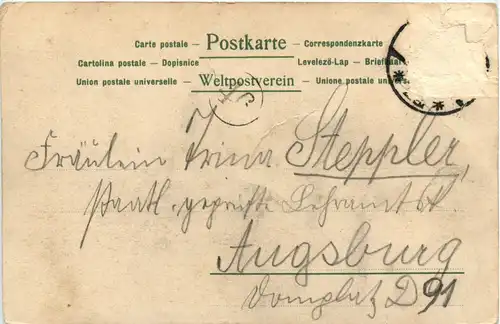 Carte postale – Postkarte – Correspondenzkarte
Cartolina postale – Dopisnice Levelező-Lap – Briefkaart
Union postale universelle – Weltpostverein – Unione postale
Fräulein Trina Steppler,
staatl. geprüfte Lehramtsk.
Augsburg
Domplatz D 91